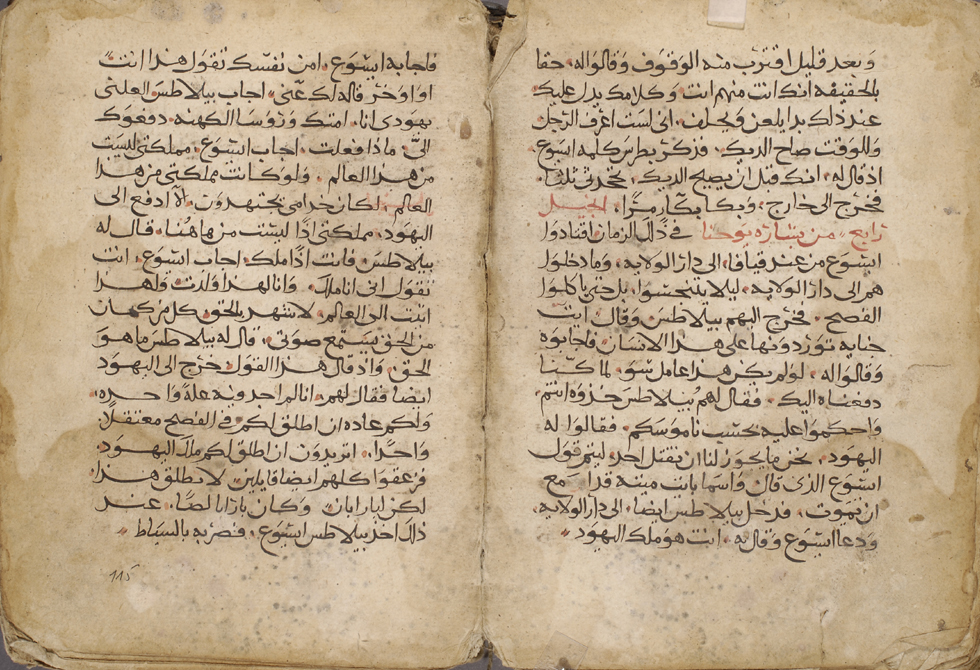 وبعد قليل اقترب منه الوقوف وقالوا له. حقا
بالحقيقه انك انت منهم انت وكلامك يدل عليك
عند ذلك بدا يلعن ويحلف. انى لست اعرف الرجل
وللوقت صاح الديك. فذكر بطرس كلمة ايسوع
اذ قال له. انك قبل ان يصيح الديك. تجحدنى ثلثا.
فخرج الى خارج. وبكا بكاً مرًّا. انجيل
رابع. من بشارة يوحنا في ذلك الزمان اقتادوا
ايسوع من عند قيافا. الى دار الولايه. وما دخلوا
هم الى دار الولايه. ليلا يتنجسوا. بل حتى ياكلوا
الفصح. فخرج اليهم بيلاطس وقال ايت
جنايه توردونها على هذا الانسان فاجابوه
وقالوا له. لو لم يكن هذا عامل سَوٍ. لما كنا
دفعناه اليك. فقال لهم بيلاطس خذوه انتم
واحكموا عليه بحسب ناموسكم. فقالوا له
اليهود. نحن ما يجوز لنا ان نقتل احد ليتم قول
ايسوع الذى قال واسما بايت ميتة مزمع
ان يموت. فدخل بيلاطس ايضا. الى دار الولايه.
ودعا ايسوع وقال له. انت هو ملك اليهود
فاجابه ايسوع. امن نفسك تقول هذا انت
او اخر قاله لك عنى. اجاب بيلاطس العلنى
يهودى انا. امتك وروسا الكهنه دفعوك
الىّ. ماذا فعلت. اجاب ايسوع. مملكتى ليست
من هذا العالم. ولو كانت مملكتى من هذا
العالم. لكان خدامى يجتهدون. الا ادفع الى
اليهود. مملكتى اذًا ليست من هاهُنا. قال له
بيلاطس. فانت اذًا ملك. اجاب ايسوع. انت
تقول انى انا ملك. وانا لهذا ولدت ولهذا
اتيت الى العالم. لاشهد بالحق. كل من كان
من الحق يستمع صوتى. قال له بيلاطس ما هو
الحق. واذ قال هذا القول. خرج الى اليهود
ايضا فقال لهم. انا لم اجد فيه علة واحده.
ولكم عاده ان اطلق لكم في الفصح معتقلًا.
واحدًا. اتريدون ان اطلق لكم ملك اليهود.
فزعقوا كلهم ايضا قايلين. لا تطلق هذا
لكن لبارابان. وكان بارابا لصًّا. عند
ذلك اخذ بيلاطس ايسوع. فضربه بالسياط
115